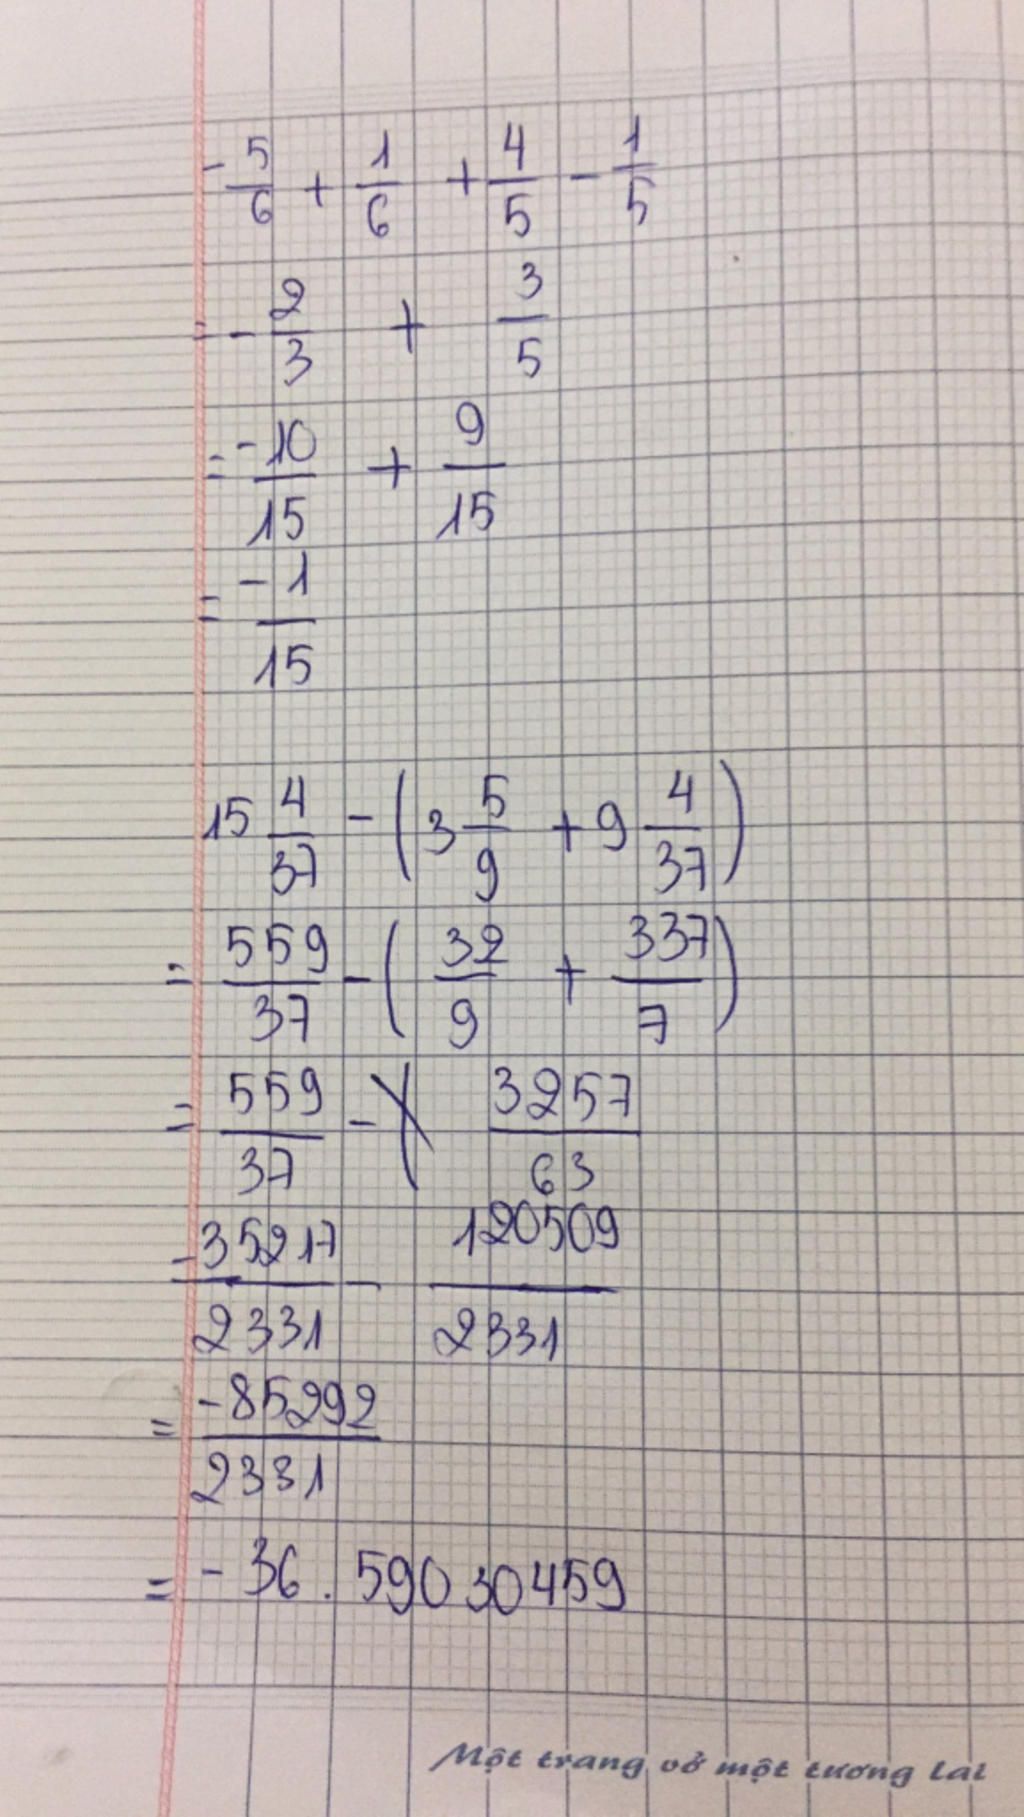 -5/6 + 1/6 + 4/5 - 1/5
= -2/3 + 3/5
= -10/15 + 9/15
= -1/15
15 4/37 - (3 5/9 + 9 4/37)
= 559/37 - (32/9 + 337/7)
= 559/37 - 3257/63
= 35217/2331 - 120509/2331
= -85292/2331
= -36.59030459
Một trang vở một tương lai